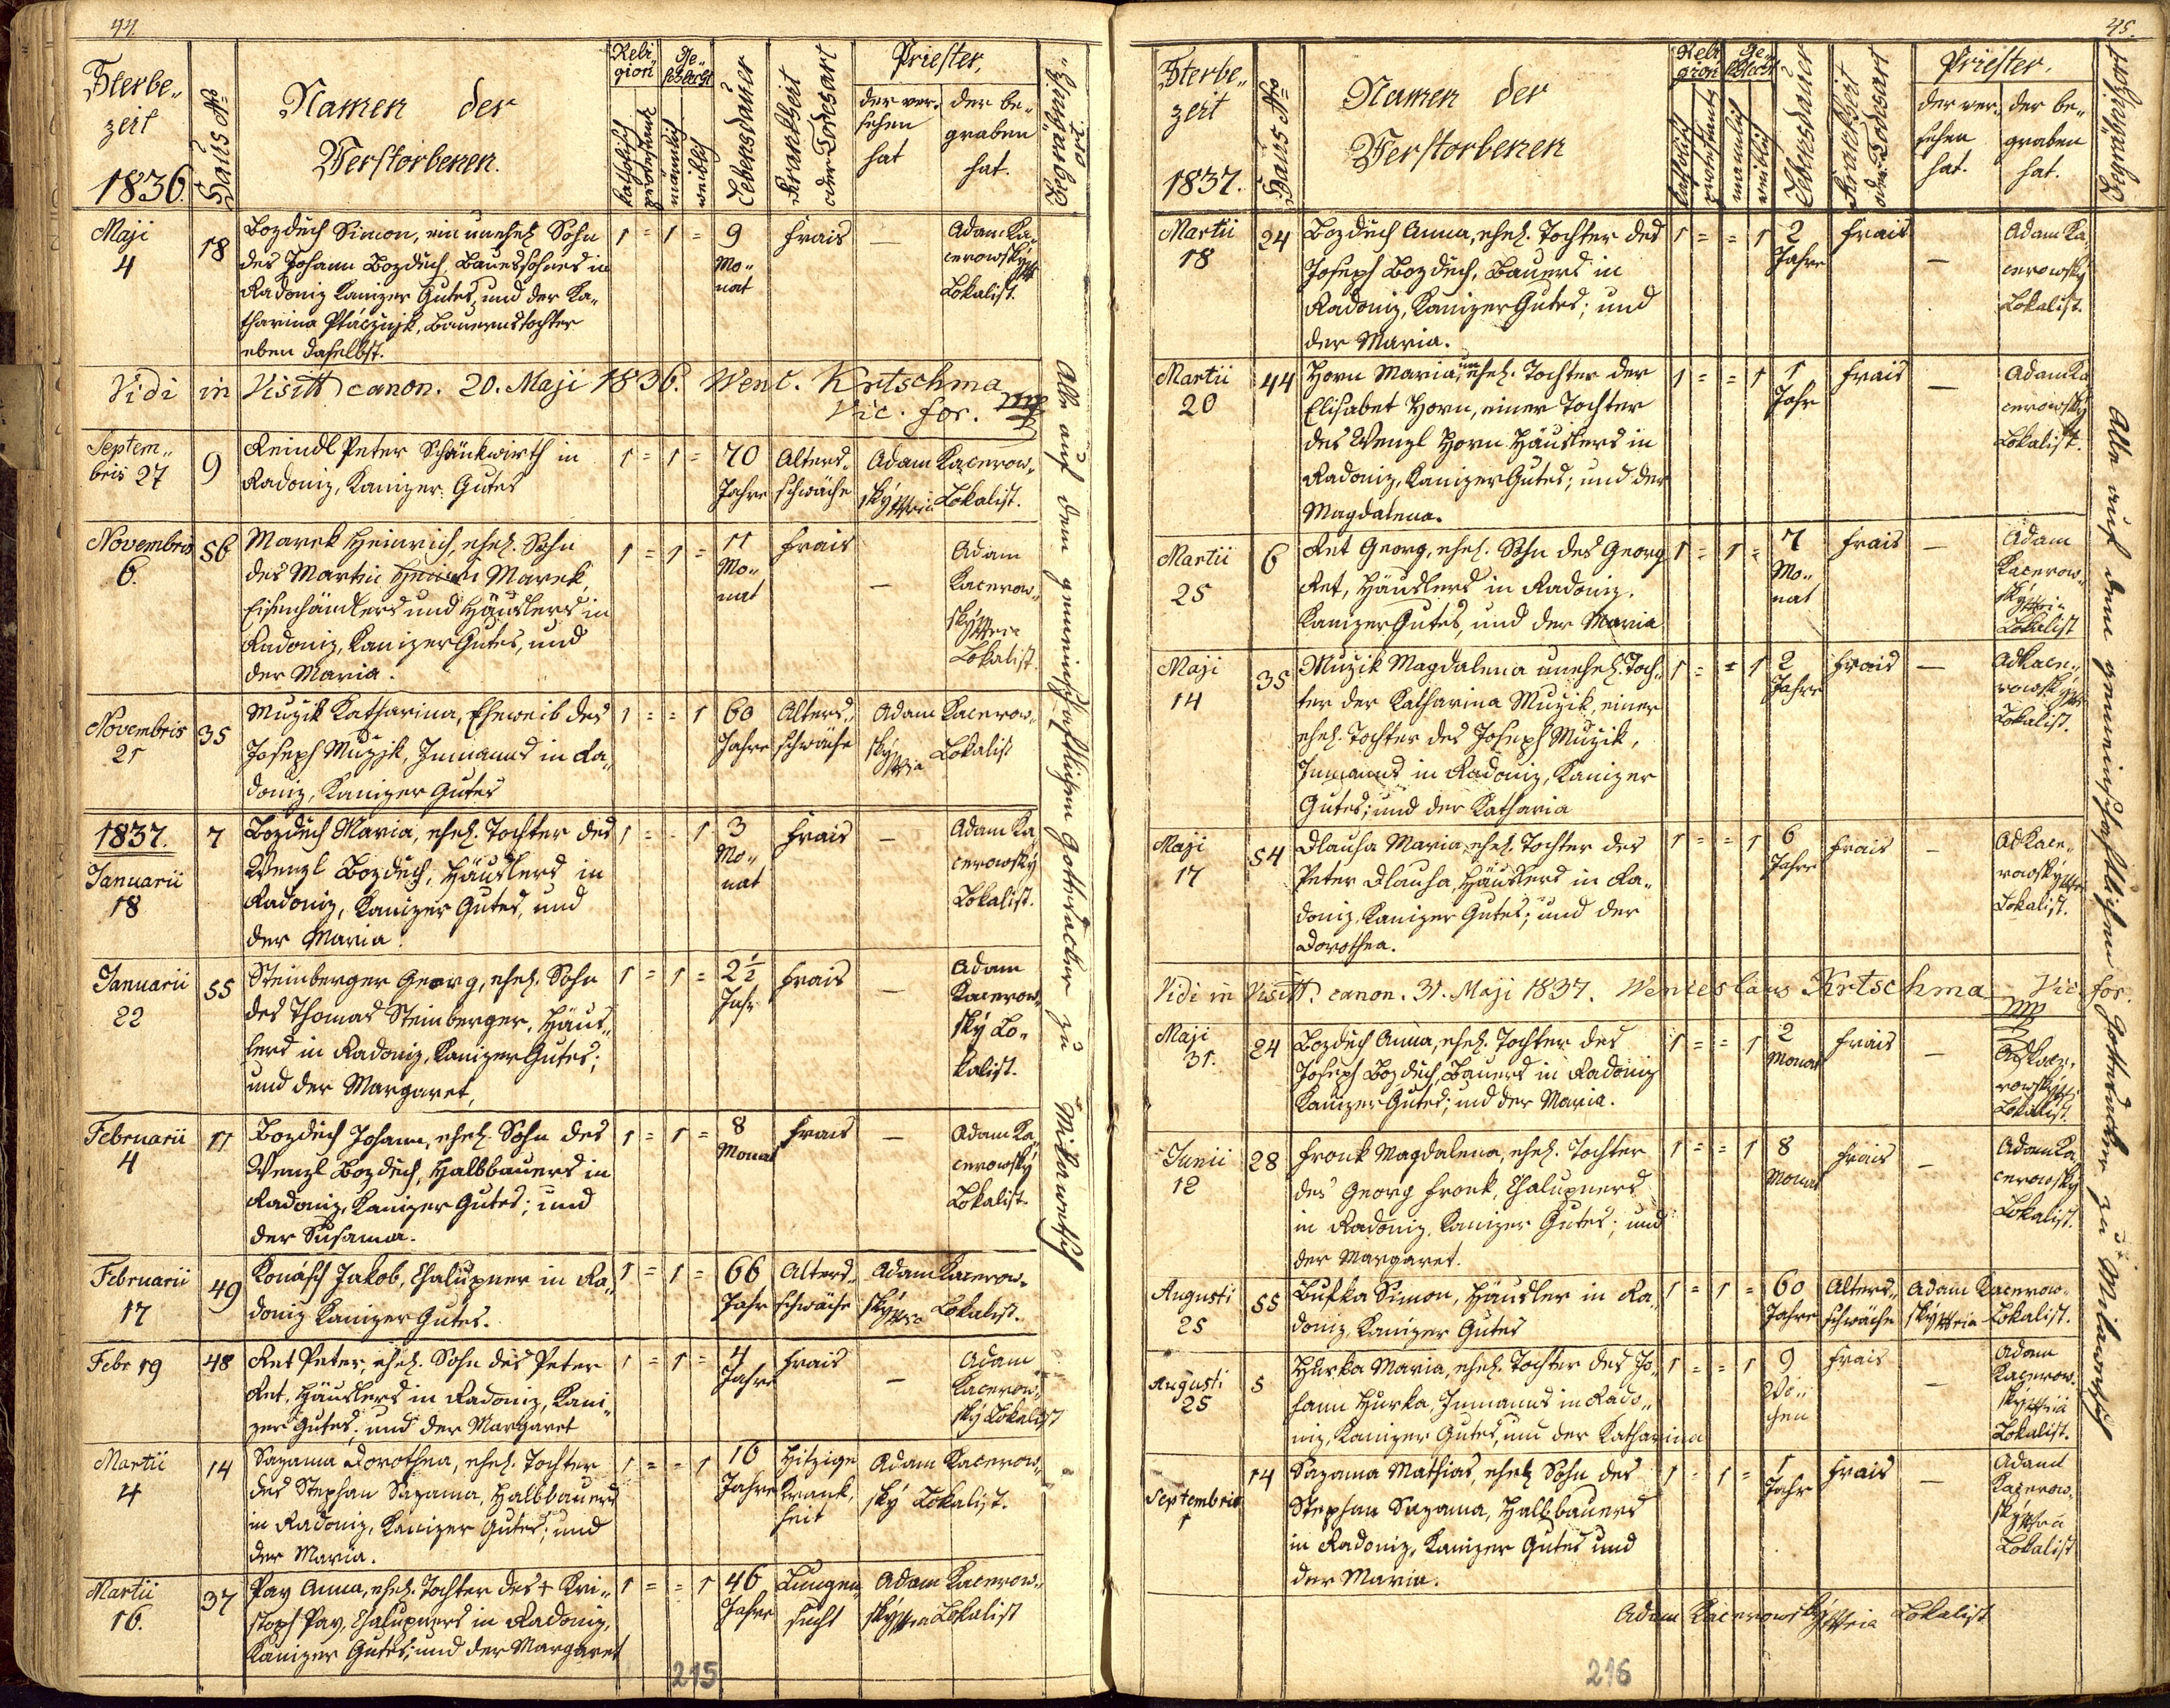 44.
Sterbe„
zeit
1836.
Haus No
Namen der
Verstorbenen.
Reli
gion
katholisch
protestantisch
Ge„
schlecht
männlich
weiblich
Lebensdauer
Krankheit
oder Todesart
Priester,
der ver„
sehen
hat
der be„
graben
hat.
Ort der
Begrabung
Maji
4
18
Bozdĕch Simon, ein unehel. Sohn
des Johann Bozdĕch, Bauerssohnes in
Radoniz Kanizer Gutes, und der Ka„
tharina Ptácznjk, Bauernstochter
eben daselbst.
1 = 1 =
9
Mo„
nat
Frais
—
Adam Ka„
cerowský
Lokalist.
Vidi in Visitt canon. 20. Maji 1836. Wenc. Krtschma
Vic. for. mp
Septem„
bris 27
9
Reindl Peter Schänkwirth in
Radoniz, Kanizer Gutes
1 = 1 =
70
Jahre
Alters„
schwäche
Adam Kacerow„
ský Lokalist.
Novembris
6.
56
Marek Heinrich, ehel. Sohn
des Martin Marek,
Eisenhändlers und Häuslers in
Radoniz, Kanizer Gutes, und
der Maria.
1 = 1 =
11
Mo„
nat
Frais
—
Adam
Kacerow„
ský
Lokalist.
Novembris
21
35
Muzik Katharina, Eheweib des
Joseph Muzik, Inmanns in Ra„
doniz, Kanizer Gutes
1 = = 1
60
Jahre
Alters„
schwäche
Adam Kacerow„
ský Lokalist
1837.
Januarii
18
7
Bozdĕch Maria, ehel. Tochter des
Wenzl Bozdĕch, Häuslers in
Radoniz, Kanizer Gutes, und
der Maria.
1 = = 1
3
Mo„
nat
Frais
—
Adam Ka
cerowský
Lokalist.
Januarii
22
55
Steinberger Georg, ehel. Sohn
des Thomas Steinberger, Häus„
lers in Radoniz, Kanizer Gutes;
und der Margaret,
1 = 1 =
2½
Jahr
Frais
—
Adam
Kacerow„
ský Lo„
kalist.
Februarii
4
11
Bozdĕch Johann, ehel. Sohn des
Wenzl Bozdĕch, Halbbauers in
Radoniz, Kanizer Gutes; und
der Susanna.
1 = 1 =
8
Monat
Frais
—
Adam Ka„
cerowský
Lokalist.
Februarii
17
49
Konásch Jakob, Chalupner in Ra„
doniz Kanizer Gutes.
1 = 1 =
66
Jahr
Alters„
schwäche
Adam Kacerow„
ský Lokalist.
Febr 19
48
Ret Peter, ehel. Sohn des Peter
Ret, Häuslers in Radoniz, Kani„
zer Gutes; und der Margaret
1 = 1 =
4
Jahre
Frais
—
Adam
Kacerow„
ský Lokalist
Martii
4
14
Sazama Dorothea, ehel. Tochter
des Stephan Sazama, Halbbauers
in Radoniz, Kanizer Gutes; und
der Maria.
1 = = 1
16
Jahre
Hitzige
Krank„
heit
Adam Kacerow„
ský Lokalist.
Martii
16.
37
Pav Anna, ehel. Tochter des + Kri„
stoph Pav, Chalupners in Radoniz,
Kanizer Gutes; und der Margaret
1 = = 1
46
Jahre
Lungen
sucht
Adam Kacerow„
ský Lokalist
Alle auf dem gemeinschaftlichen Gottesacker zu Milawetsch
215
45.
Sterbe„
zeit
1837.
Haus No
Namen der
Verstorbenen
Reli
gion
katholisch
protestantisch
Ge„
schlecht
männlich
weiblich
Lebensdauer
Krankheit
oder Todesart
Priester.
der ver„
sehen
hat.
der be„
graben
hat.
Begrabung
Martii
18
24
Bozdĕch Anna, ehel. Tochter des
Joseph Bozdĕch, Bauers in
Radoniz, Kanizer Gutes; und
der Maria.
1 = = 1
2
Jahre
Frais
—
Adam Ka„
cerowský
Lokalist.
Martii
20
44
Horn Maria, unehel. Tochter der
Elisabet Horn, einer Tochter
des Wenzl Horn Häuslers in
Radoniz, Kanizer Gutes; und der
Magdalena.
1 = = 1
1
Jahr
Frais
—
Adam Ka
cerowský
Lokalist.
Martii
25
6
Ret Georg, ehel. Sohn des Georg
Ret, Häuslers in Radoniz,
Kanizer Gutes, und der Maria
1 = 1 =
7
Mo„
nat
Frais
—
Adam
Kacerow„
ský
Lokalist
Maji
14
35
Muzik Magdalena unehel. Toch„
ter der Katharina Muzik, einer
ehel. Tochter des Joseph Muzik,
Inmanns in Radoniz, Kanizer
Gutes; und der Katharia
1 = = 1
2
Jahre
Frais
—
Ad Kace„
rowský
Lokalist.
Maji
17
54
Dlauha Maria, ehel. Tochter des
Peter Dlauha, Häuslers in Ra„
doniz, Kanizer Gutes; und der
Dorothea.
1 = = 1
6
Jahre
Frais
—
Ad Kace„
rowský
Lokalist.
Vidi in Visitt. canon. 31. Maji 1837. Wenceslaus Krtschma Vic. for.
mp
Maji
31.
24
Bozdĕch Anna, ehel. Tochter des
Joseph Bozdĕch, Bauers in Radoniz
Kanizer Gutes; und der Maria.
1 = = 1
2
Monat
Frais
—
Ad Kace„
rowský
Lokalist.
Junii
12
28
Fronk Magdalena, ehel. Tochter
des Georg Fronk, Chalupners
in Radoniz, Kanizer Gutes; und
der Margaret.
1 = = 1
8
Monat
Frais
—
Adam Ka„
cerowský
Lokalist.
Augusti
25
55
Bufka Simon, Häusler in Ra„
doniz, Kanizer Gutes
1 = 1 =
60
Jahre
Alters„
schwäche
Adam Kacerow„
ský Lokalist.
Augusti
25
5
Hurka Maria, ehel. Tochter des Jo„
hann Hurka, Inmanns in Rado„
niz, Kanizer Gutes, und der Katharina
1 = = 1
9
Wo„
chen
Frais
—
Adam
Kacerow„
ský
Lokalist.
Septembris
1
14
Sazama Mathias, ehel. Sohn des
Stephan Sazama, Halbbauers
in Radoniz, Kanizer Gutes und
der Maria.
1 = 1 =
1
Jahr
Frais
—
Adam
Kacerow„
ský
Lokalist
Adam Kacerowský Lokalist
Alle auf dem gemeinschaftlichen Gottesacker zu Milawetsch
216